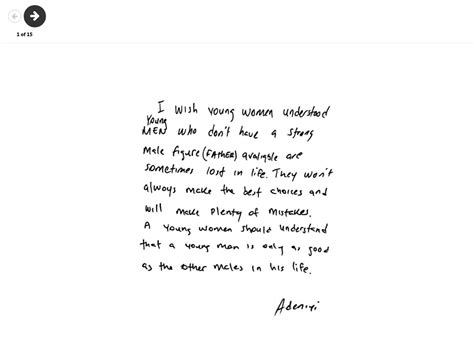 1 of 15
I wish young women understood
Young
MEN who don't have a strong
Male figure (FAtHER) available are
sometimes lost in life. They won't
always make the best choices and
will make plenty of mistakes.
A young women should understand
that a young man is only as good
as the other males in his life.
Adeniyi